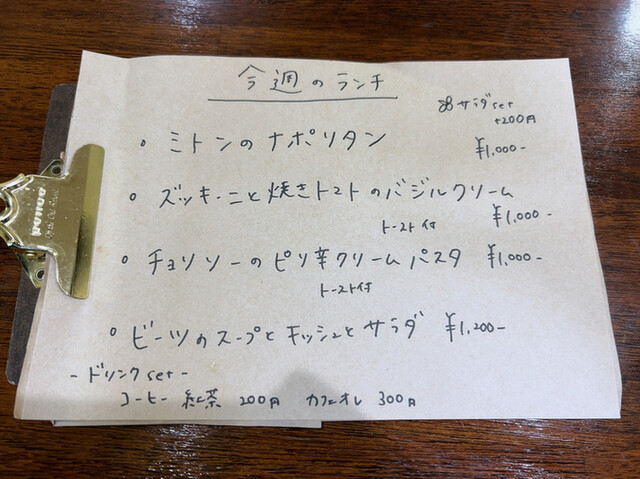 今週のランチ
サラダset
+200円
• ミトンのナポリタン ¥1,000-
• ズッキーニと焼きトマトのバジルクリーム
トースト付 ¥1,000-
• チョリソーのピリ辛クリームパスタ ¥1,000-
トースト付
• ビーツのスープとキッシュとサラダ ¥1,200-
- ドリンクset -
コーヒー 紅茶 200円 カフェオレ 300円